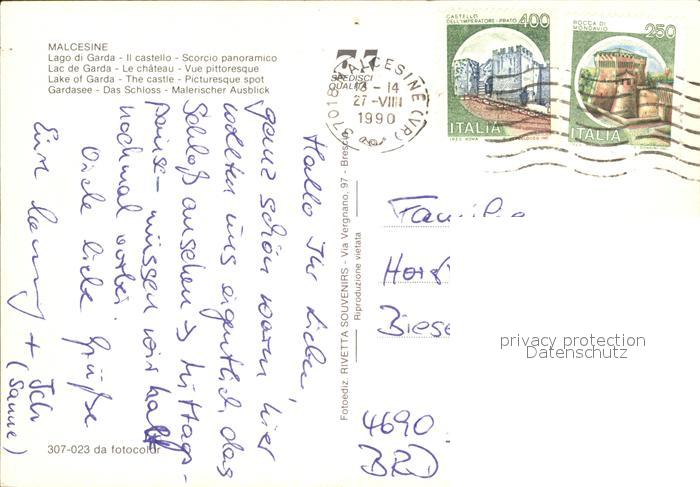 MALCESINE
Lago di Garda - Il castello - Scorcio panoramico
Lac de Garda - Le château - Vue pittoresque
Lake of Garda - The castle - Picturesque spot
Gardasee - Das Schloss - Malerischer Ausblick
Hallo Ihr Lieben,
ganz schön warm hier
wollten uns eigentlich das
Schloß ansehen → Mittags-
pause - müssen wir halt
nochmal vorbei.
Viele liebe Grüße
Eure
+ Ich
(Sanne)
307-023 da fotocolor
Fotoediz. RIVETTA SOUVENIRS - Via Vergnano, 97 - Brescia
Riproduzione vietata
SPEDISCI
37018 MALCESINE (VR)
13-14
27-VIII
1990
CASTELLO
DELL'IMPERATORE - PRATO
400
ITALIA
ROCCA DI
MONDAVIO
250
ITALIA
Familie
4690
BRD
privacy protection
Datenschutz